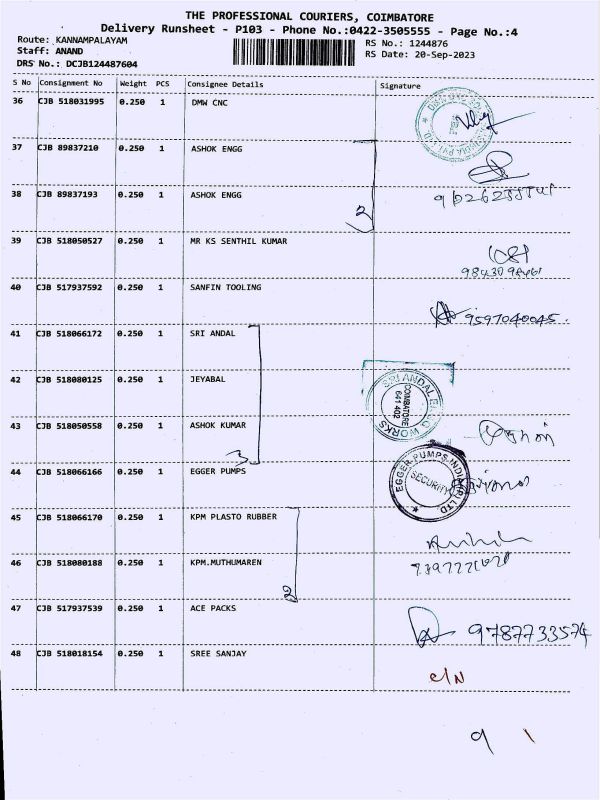 THE PROFESSIONAL COURIERS, COIMBATORE
Delivery Runsheet - P103 - Phone No.:0422-3505555 - Page No.:4
Route: KANNAMPALAYAM
RS No.: 1244876
Staff: ANAND
RS Date: 20-Sep-2023
DRS No.: DCJB124487604
S No Consignment No Weight PCS Consignee Details Signature
36 CJB 518031995 0.250 1 DMW CNC
37 CJB 89837210 0.250 1 ASHOK ENGG
38 CJB 89837193 0.250 1 ASHOK ENGG
2
39 CJB 518050527 0.250 1 MR KS SENTHIL KUMAR
40 CJB 517937592 0.250 1 SANFIN TOOLING
9597040045.
41 CJB 518066172 0.250 1 SRI ANDAL
42 CJB 518080125 0.250 1 JEYABAL
SRI ANDAL ENGG WORKS
COIMBATORE
641 402
43 CJB 518050558 0.250 1 ASHOK KUMAR
3
44 CJB 518066166 0.250 1 EGGER PUMPS
EGGER PUMPS INDIA (P) LTD.
SECURITY
45 CJB 518066170 0.250 1 KPM PLASTO RUBBER
46 CJB 518080188 0.250 1 KPM.MUTHUMAREN
2
47 CJB 517937539 0.250 1 ACE PACKS
9787733574
48 CJB 518018154 0.250 1 SREE SANJAY
C/N
9 1